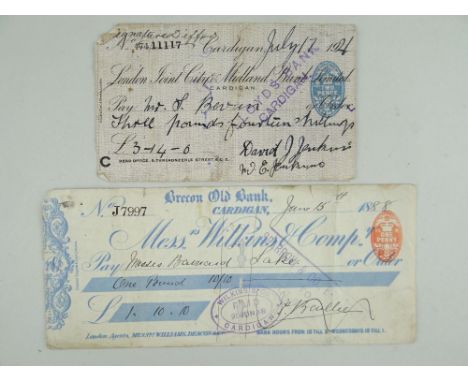 Signatures Differ
No 11117 Cardigan July 17 1924
London Joint City & Midland Bank Limited
CARDIGAN
LLOYDS BANK
CARDIGAN
TWO PENCE
Pay Mr. S. Bevan or Order
Three pounds fourteen shillings
£3-14-0 David J Jenkins
C HEAD OFFICE, 5, THREADNEEDLE STREET, E.C.2.
Brecon Old Bank,
No J7997 CARDIGAN, June 15th 1888
Messrs Wilkins & Compy.
ONE PENNY
Pay Messrs Lake or Order
One Pound 10/10
£1.10.10
WILKINS
PAID
CARDIGAN
London Agents, MESSRS WILLIAMS, DEACON
BANK HOURS FROM 10 TILL 3. WEDNESDAYS 10 TILL 1.